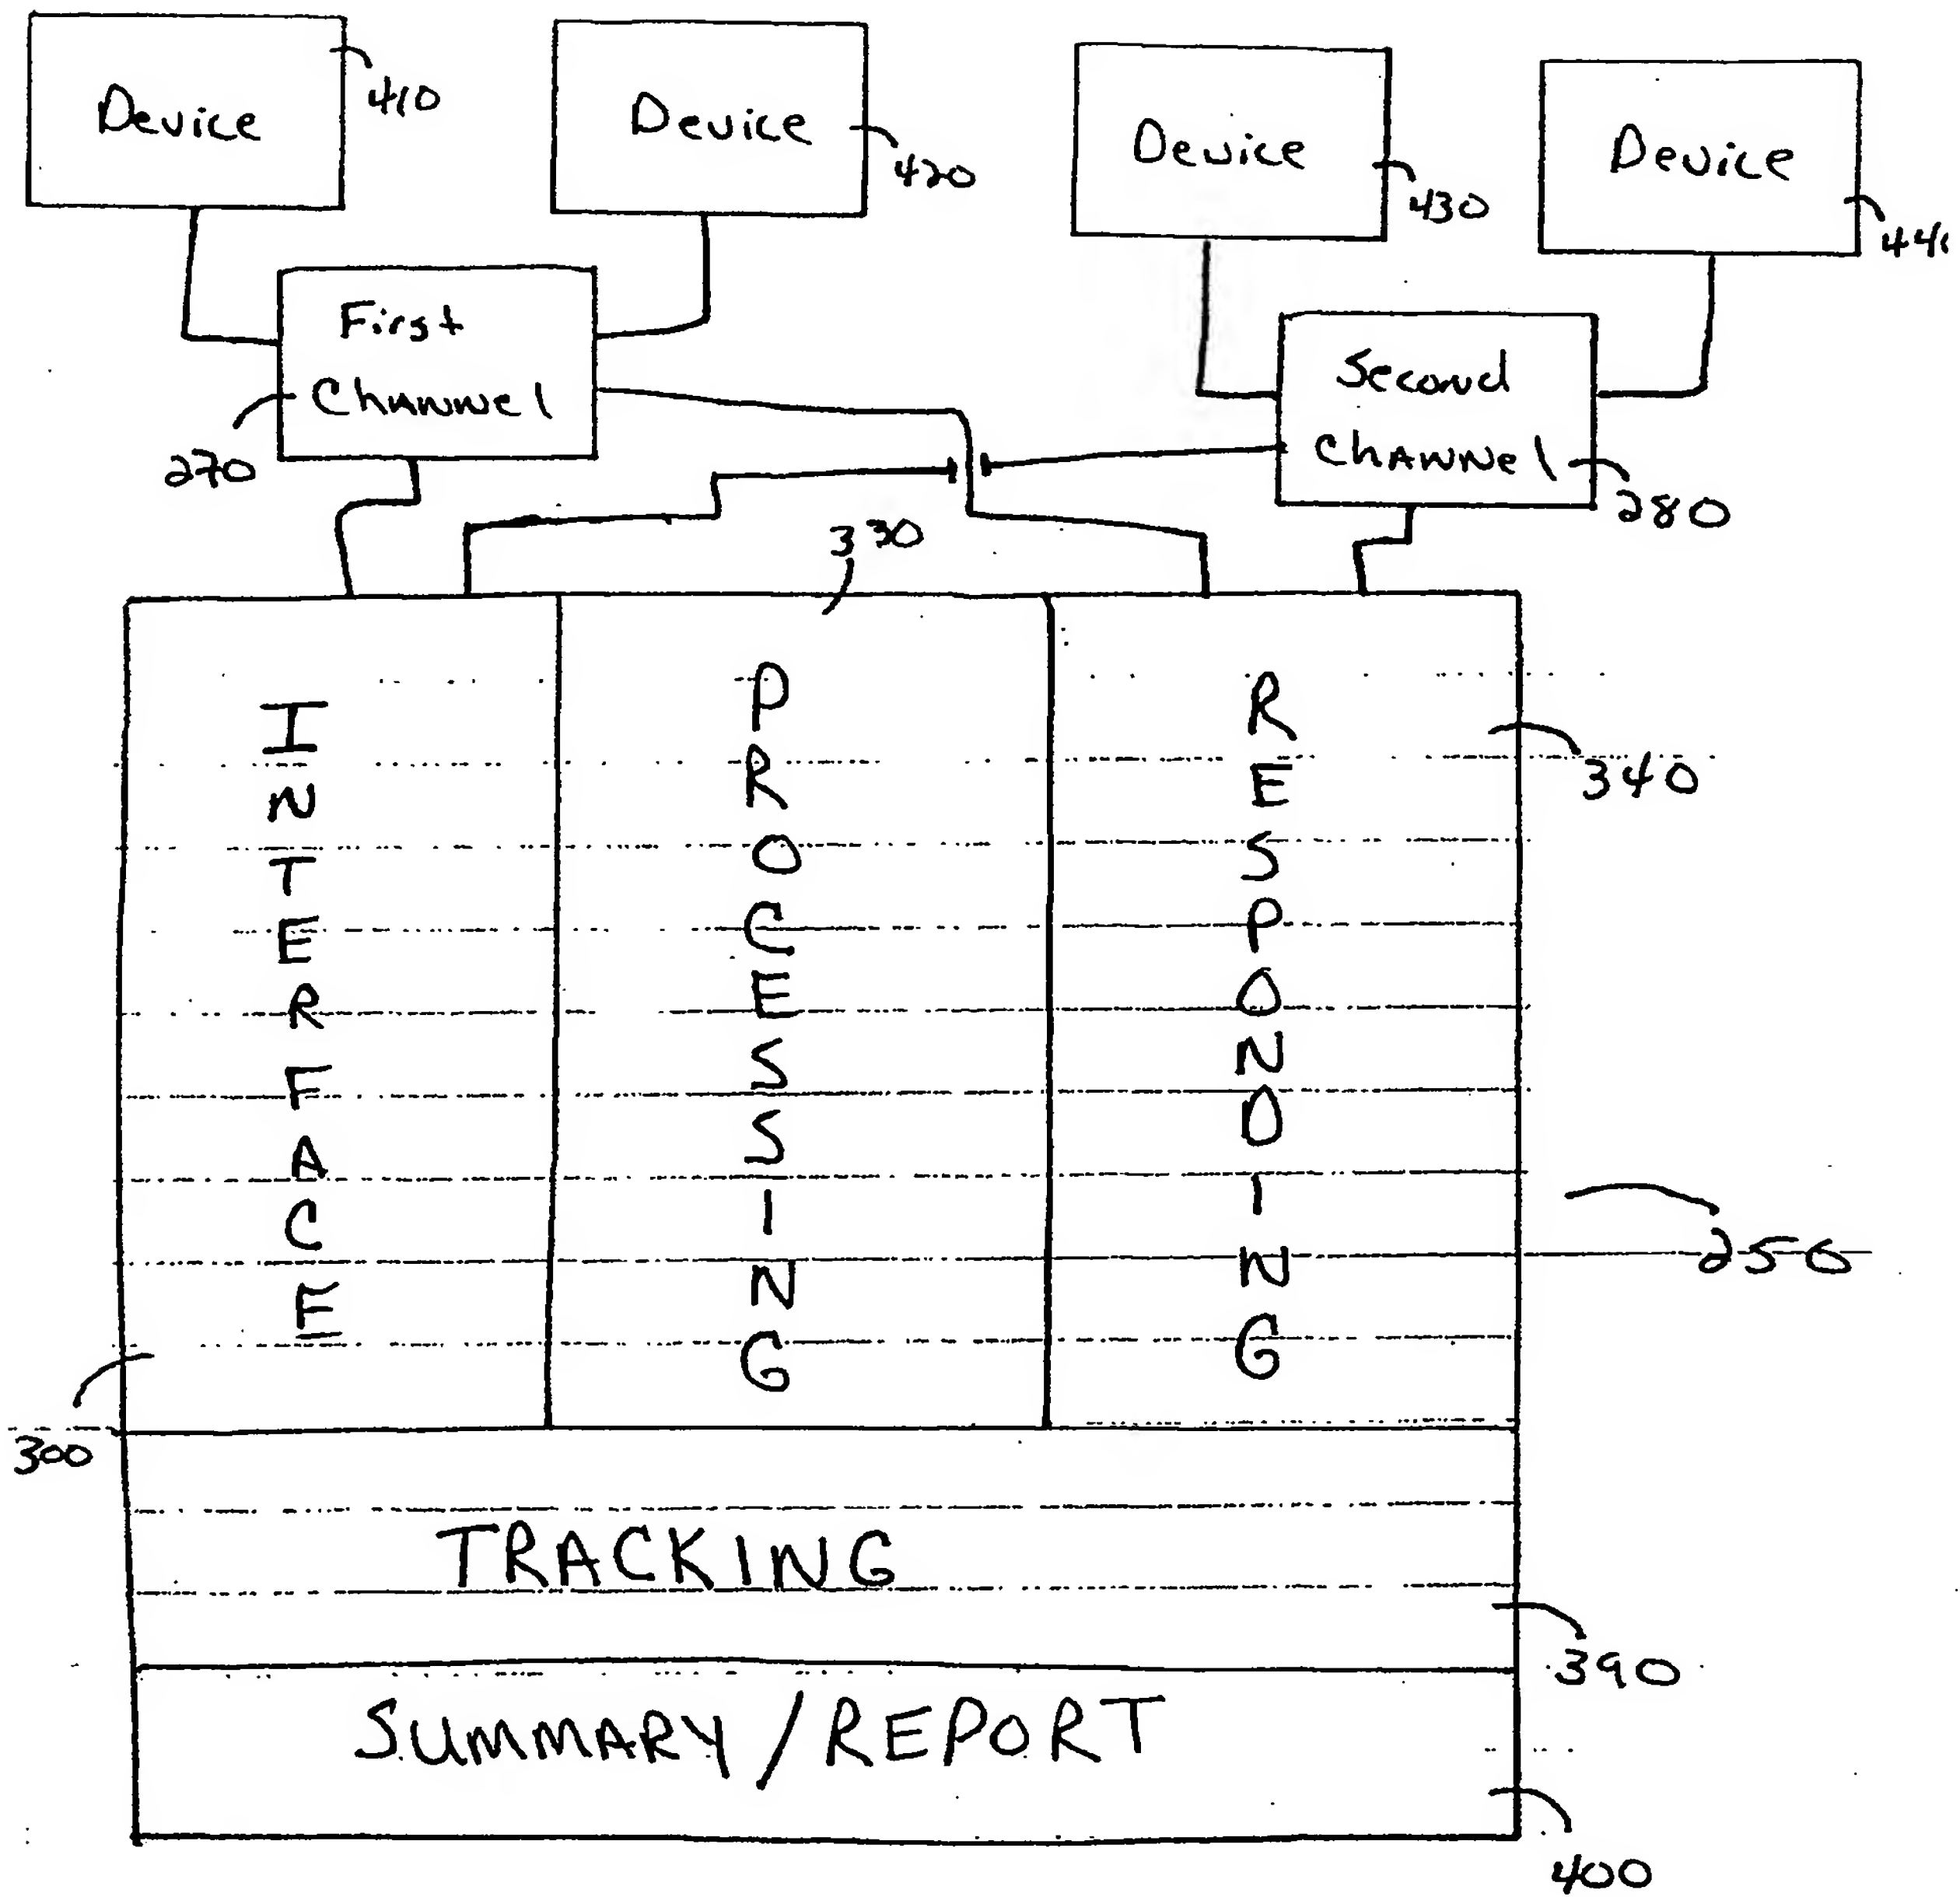 Device
410
Device
420
Device
430
Device
First
Channel
270
Second
Channel
280
330
INTERFACE
PROCESSING
RESPONDING
340
250
300
TRACKING
390
SUMMARY/REPORT
400